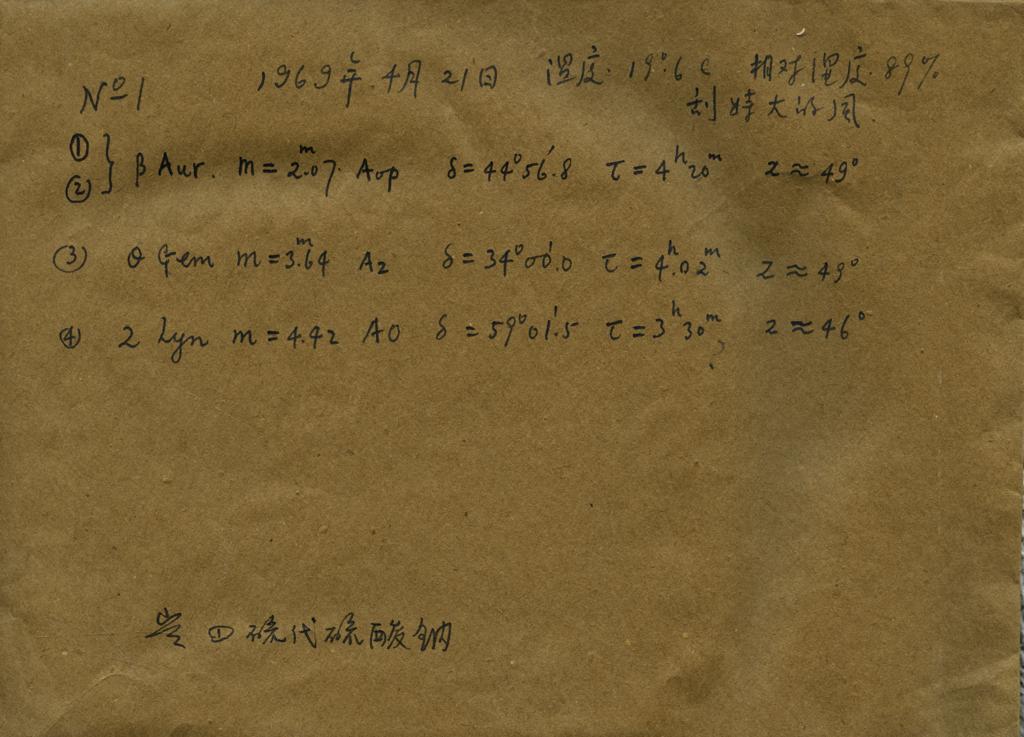 No 1 1969年 4月 21日 温度: 19°.6 C 相对湿度: 89%
刮 大的风.
① ② } β Aur. m = 2.ᵐ07. Aop δ = 44°56′.8 τ = 4ʰ20ᵐ z ≈ 49°
③ θ Gem m = 3.ᵐ64 A2 δ = 34°00′.0 τ = 4ʰ.02ᵐ z ≈ 49°
④ 2 Lyn m = 4.42 A0 δ = 59°01′.5 τ = 3ʰ30ᵐ z ≈ 46°
?
① 硫代硫酸钠